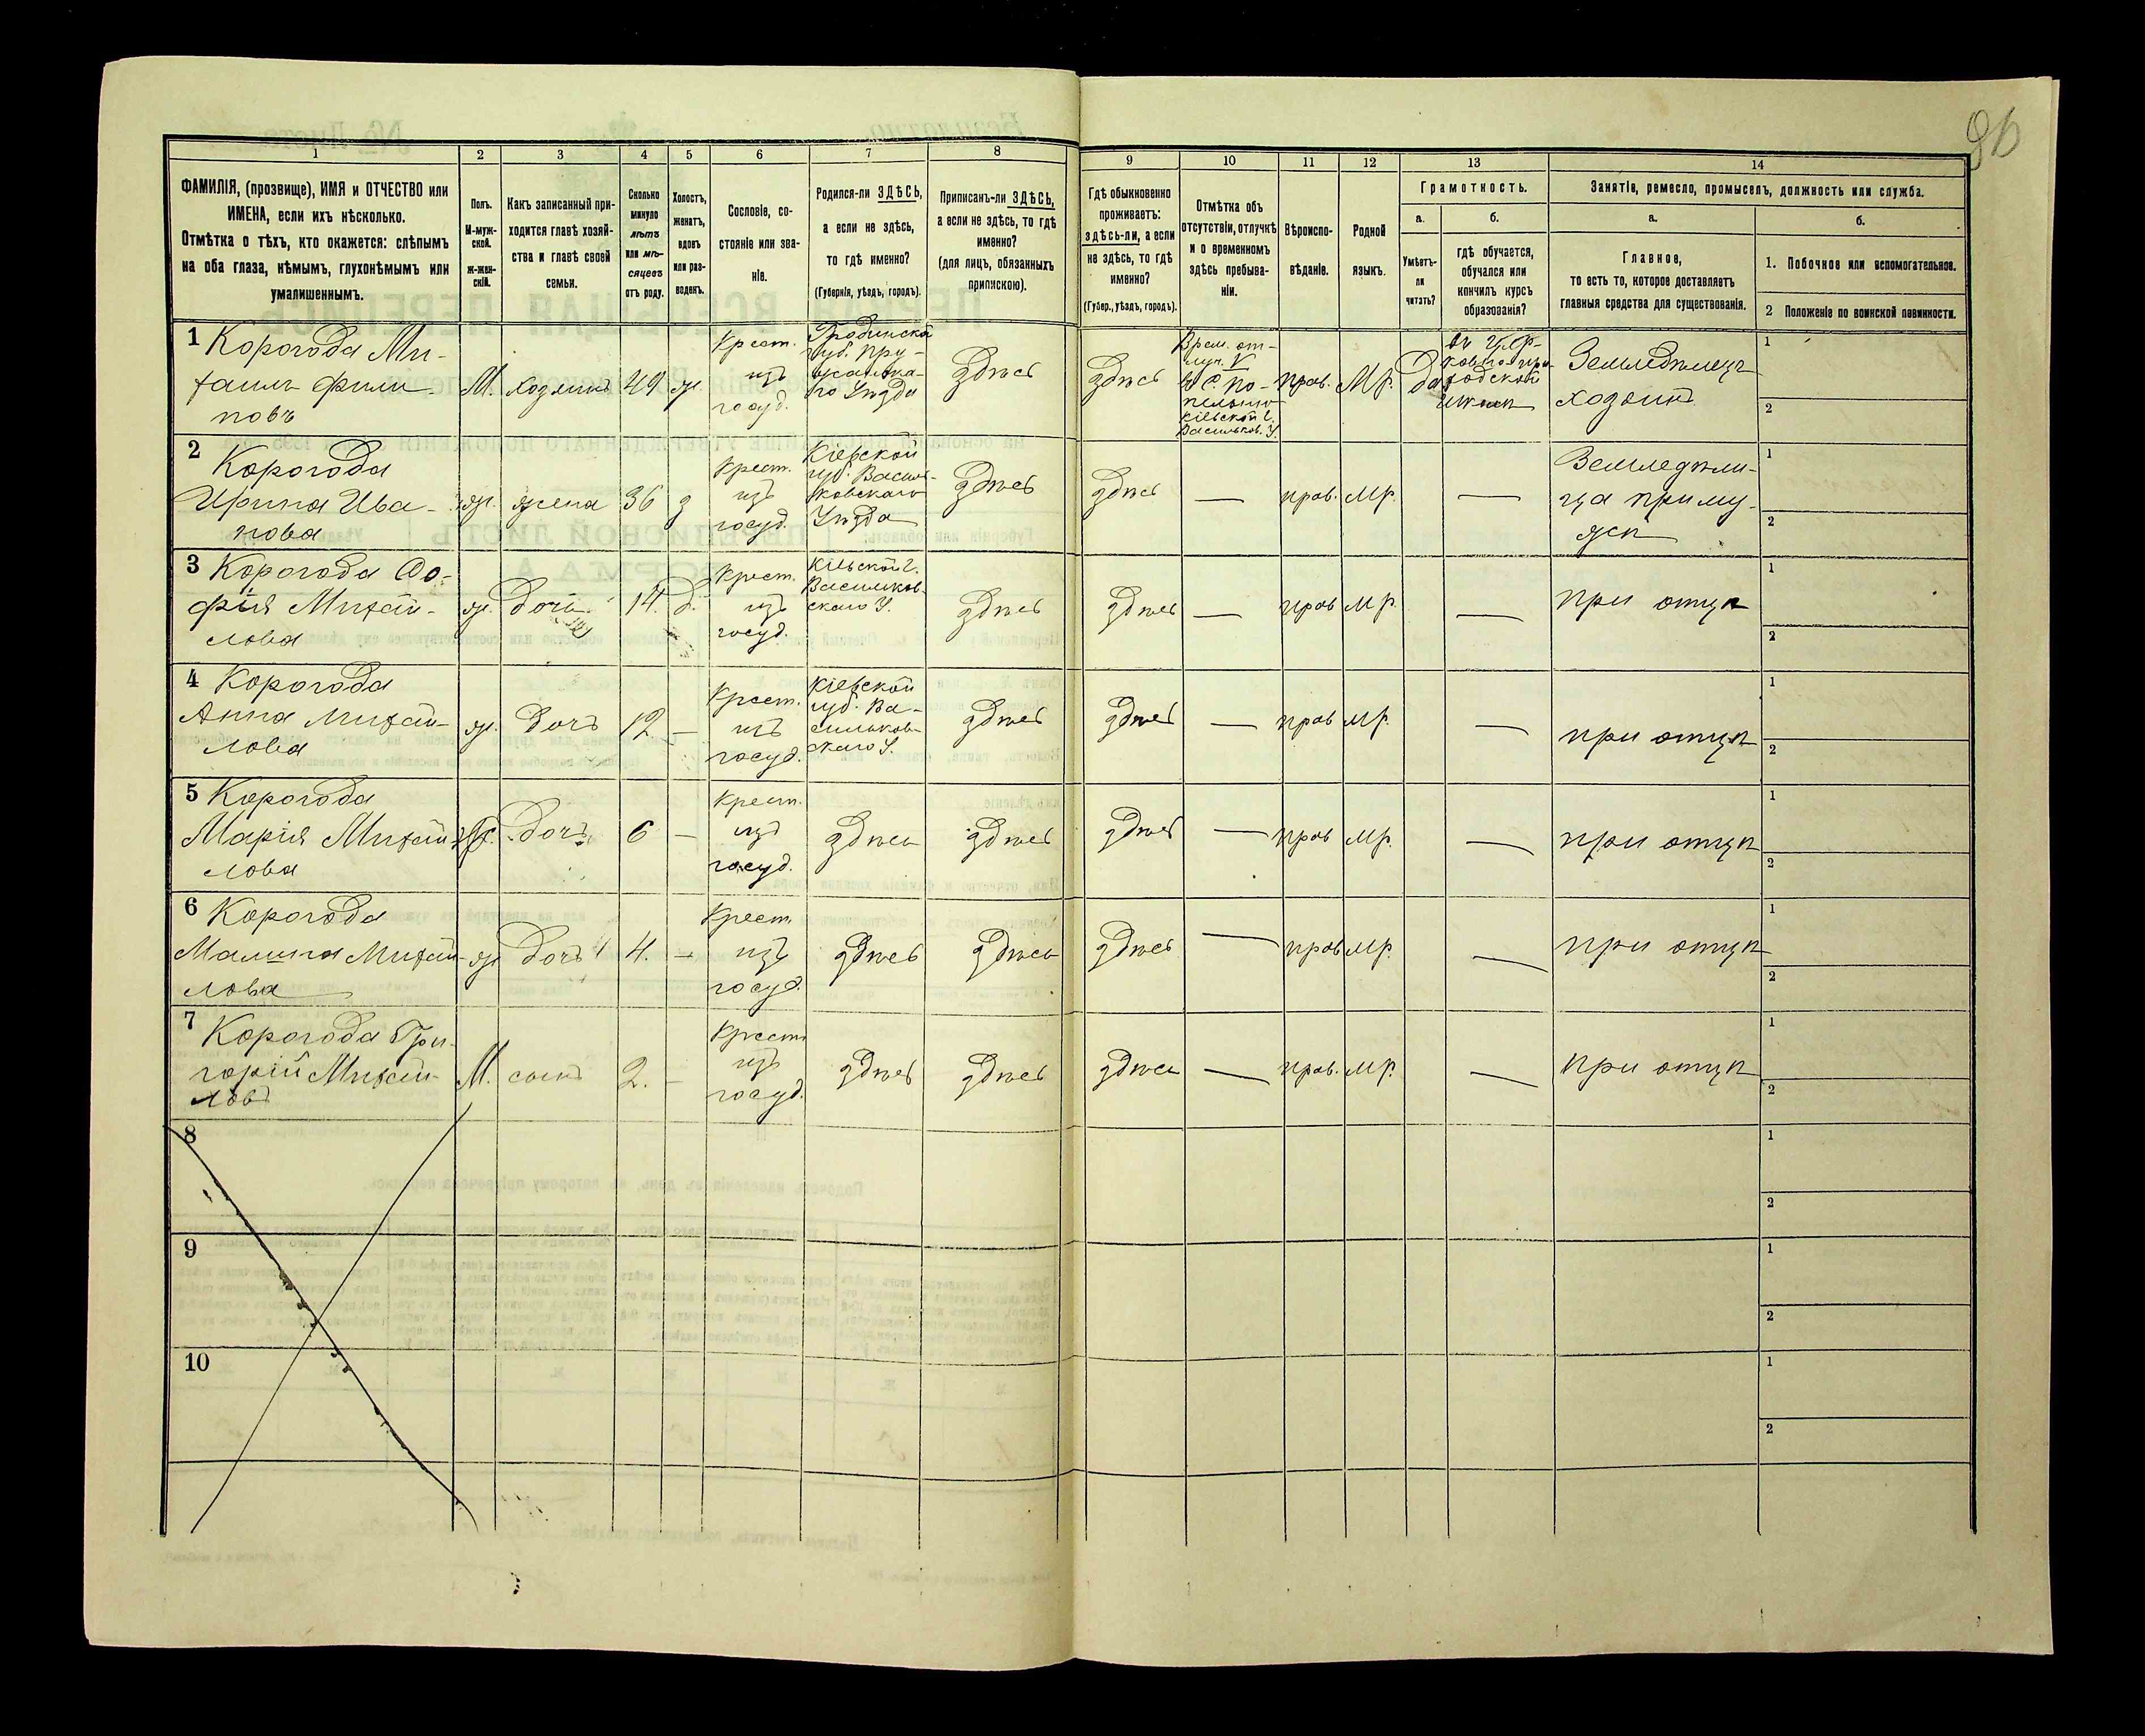 96
1 2 3 4 5 6 7 8 9 10 11 12 13 14
ФАМИЛІЯ, (прозвище), ИМЯ и ОТЧЕСТВО или
ИМЕНА, если ихъ нѣсколько.
Отмѣтка о тѣхъ, кто окажется: слѣпымъ
на оба глаза, нѣмымъ, глухонѣмымъ или
умалишеннымъ.
Полъ.
М-муж-
ской.
ж-жен-
скій.
Какъ записанный при-
ходится главѣ хозяй-
ства и главѣ своей
семьи.
Сколько
минуло
лѣтъ
или мѣ-
сяцевъ
отъ роду.
Холостъ,
женатъ,
вдовъ
или раз-
веденъ.
Сословіе, со-
стояніе или зва-
ніе.
Родился-ли ЗДѢСЬ,
а если не здѣсь,
то гдѣ именно?
(Губернія, уѣздъ, городъ).
Приписанъ-ли ЗДѢСЬ,
а если не здѣсь, то гдѣ
именно?
(для лицъ, обязанныхъ
припискою).
Гдѣ обыкновенно
проживаетъ:
здѣсь-ли, а если
не здѣсь, то гдѣ
именно?
(Губер., уѣздъ, городъ).
Отмѣтка объ
отсутствіи, отлучкѣ
и о временномъ
здѣсь пребыва-
ніи.
Вѣроиспо-
вѣданіе.
Родной
языкъ.
Грамотность.
а.
Умѣетъ-
ли
читать?
б.
гдѣ обучается,
обучался или
кончилъ курсъ
образованія?
Занятіе, ремесло, промыселъ, должность или служба.
а.
Главное,
то есть то, которое доставляетъ
главныя средства для существованія.
б.
1. Побочное или вспомогательное.
2 Положеніе по воинской повинности.
1 Корогода Ми-
хаилъ Фили-
повъ
М.
хозяинъ
49
ж.
Крест.
изъ
госуд.
Гродненской
губ. Пру-
жанска-
го Уѣзда
здѣсь
здѣсь
Врем. от-
луч. V
в С. По-
Кіевской г.
Васильков. У.
прав.
Мр.
да
школѣ
Земледѣлецъ
хозяинъ
1
2
2 Корогода
Ирина Ива-
нова
ж.
жена
36
з
Крест.
изъ
госуд.
Кіевской
губ. Василь-
ковскаго
Уѣзда
здѣсь
здѣсь
—
прав.
Мр.
—
Земледѣли-
ца при му-
жѣ
1
2
3 Корогода Со-
фія Михай-
лова
ж.
дочь
14.
д.
Крест.
изъ
госуд.
Кіевской г.
Васильков-
скаго У.
здѣсь
здѣсь
—
прав
Мр.
—
при отцѣ
1
2
4 Корогода
Анна Михай-
лова
ж.
дочь
12
—
Крест.
изъ
госуд.
Кіевской
губ. Ва-
сильков-
скаго У.
здѣсь
здѣсь
—
прав
Мр.
—
при отцѣ
1
2
5 Корогода
Марія Михай-
лова
ж.
дочь
6
—
Крест.
изъ
госуд.
здѣсь
здѣсь
здѣсь
—
прав
Мр.
—
при отцѣ
1
2
6 Корогода
Малина Михай-
лова
ж
дочь
4.
—
Крест.
изъ
госуд.
здѣсь
здѣсь
здѣсь
—
прав
Мр.
—
при отцѣ
1
2
7 Корогода Гри-
горій Михай-
ловъ
М.
сынъ
2.
—
Крест.
изъ
госуд.
здѣсь
здѣсь
здѣсь
—
прав.
Мр.
—
при отцѣ
1
2
8
1
2
9
1
2
10
1
2